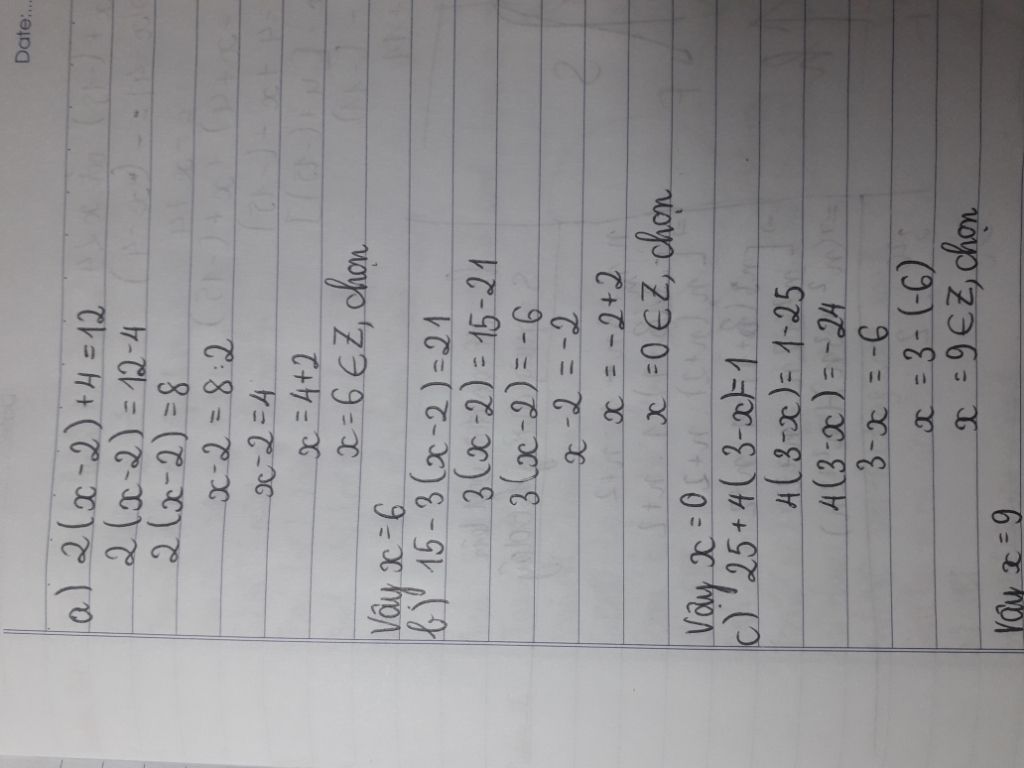 Date:...
a) 2(x-2)+4=12
2(x-2)=12-4
2(x-2)=8
x-2=8:2
x-2=4
x=4+2
x=6∈Z, chọn
Vậy x=6
b) 15-3(x-2)=21
3(x-2)=15-21
3(x-2)=-6
x-2=-2
x=-2+2
x=0∈Z, chọn
Vậy x=0
c) 25+4(3-x)=1
4(3-x)=1-25
4(3-x)=-24
3-x=-6
x=3-(-6)
x=9∈Z, chọn
Vậy x=9